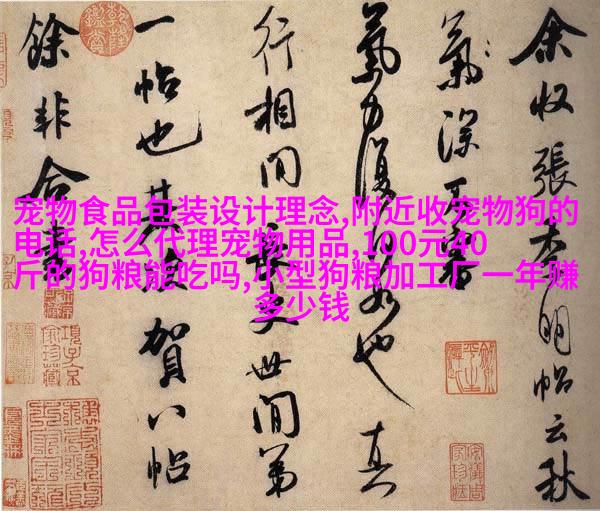 余收張季明帖云秋
氣深不審
氣力復何如也真
行相間長史世間第
一帖也其次賀八帖
餘非合書
宠物食品包装设计理念,附近收宠物狗的
电话,怎么代理宠物用品,100元40
斤的狗粮能吃吗,小型狗粮加工厂一年赚
多少钱